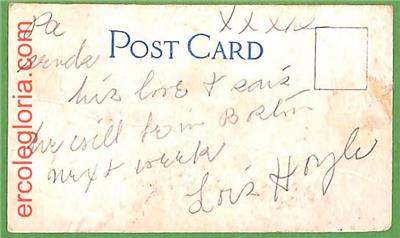 Pa xxxx
POST CARD
sends
his love & says
he will be in Boston
next week
Lois Hoyle
ercolegloria.com